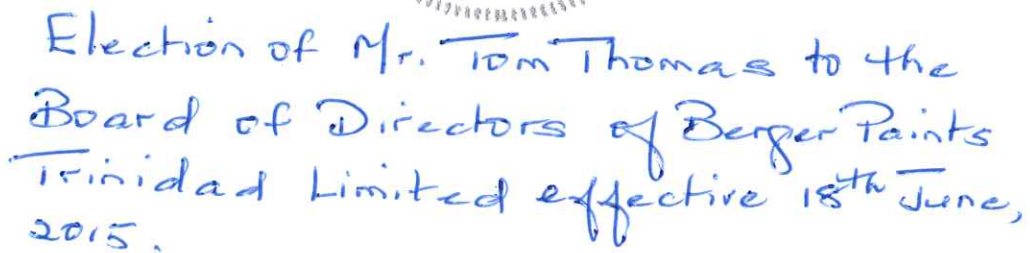 Election of Mr. Tom Thomas to the
Board of Directors of Berger Paints
Trinidad Limited effective 18th June,
2015.